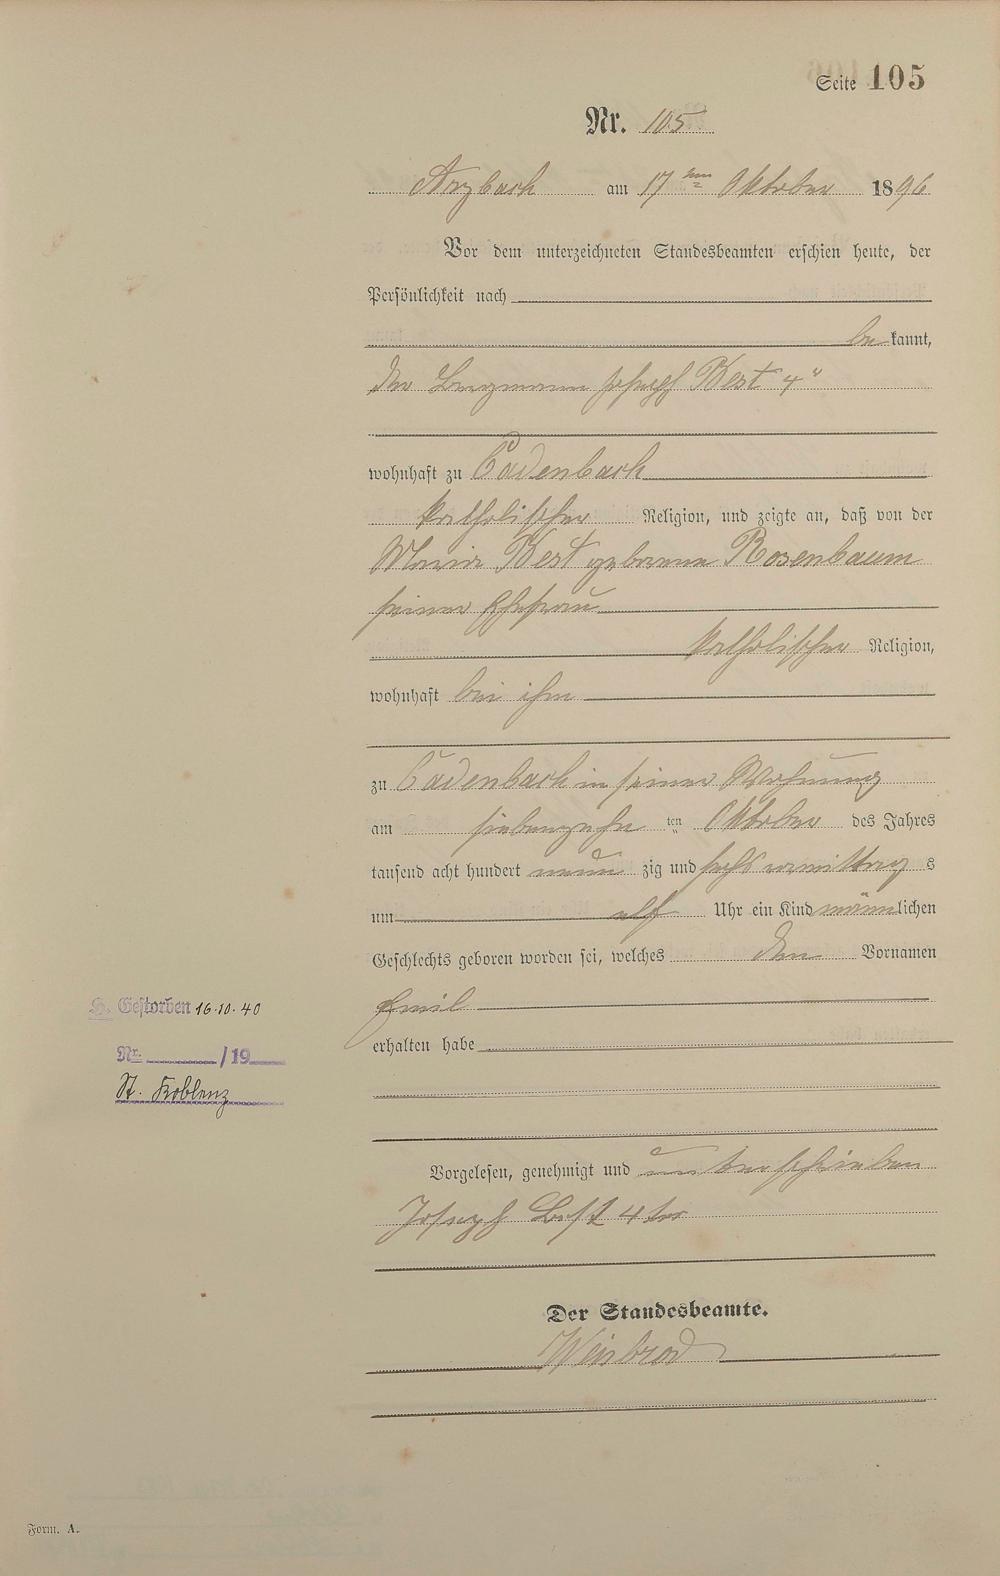 Seite 105
Nr. 105
Arzbach am 17ten Oktober 1896
Vor dem unterzeichneten Standesbeamten erschien heute, der
Persönlichkeit nach
be kannt,
der Bergmann Joseph Best 4"
wohnhaft zu Cadenbach
katholischer Religion, und zeigte an, daß von der
Maria Best geborene Rosenbaum
seiner Ehefrau
katholischer Religion,
wohnhaft bei ihm
zu Cadenbach in seiner Wohnung
am siebenzehn ten Oktober des Jahres
tausend acht hundert neun zig und sechs vormittag s
um elf Uhr ein Kind männlichen
Geschlechts geboren worden sei, welches den Vornamen
Emil
erhalten habe
H. Gestorben 16.10.40
Nr. /19
St. Koblenz
Vorgelesen, genehmigt und unterschrieben
Joseph Best 4ter
Der Standesbeamte.
Weisbrod
Form. A.